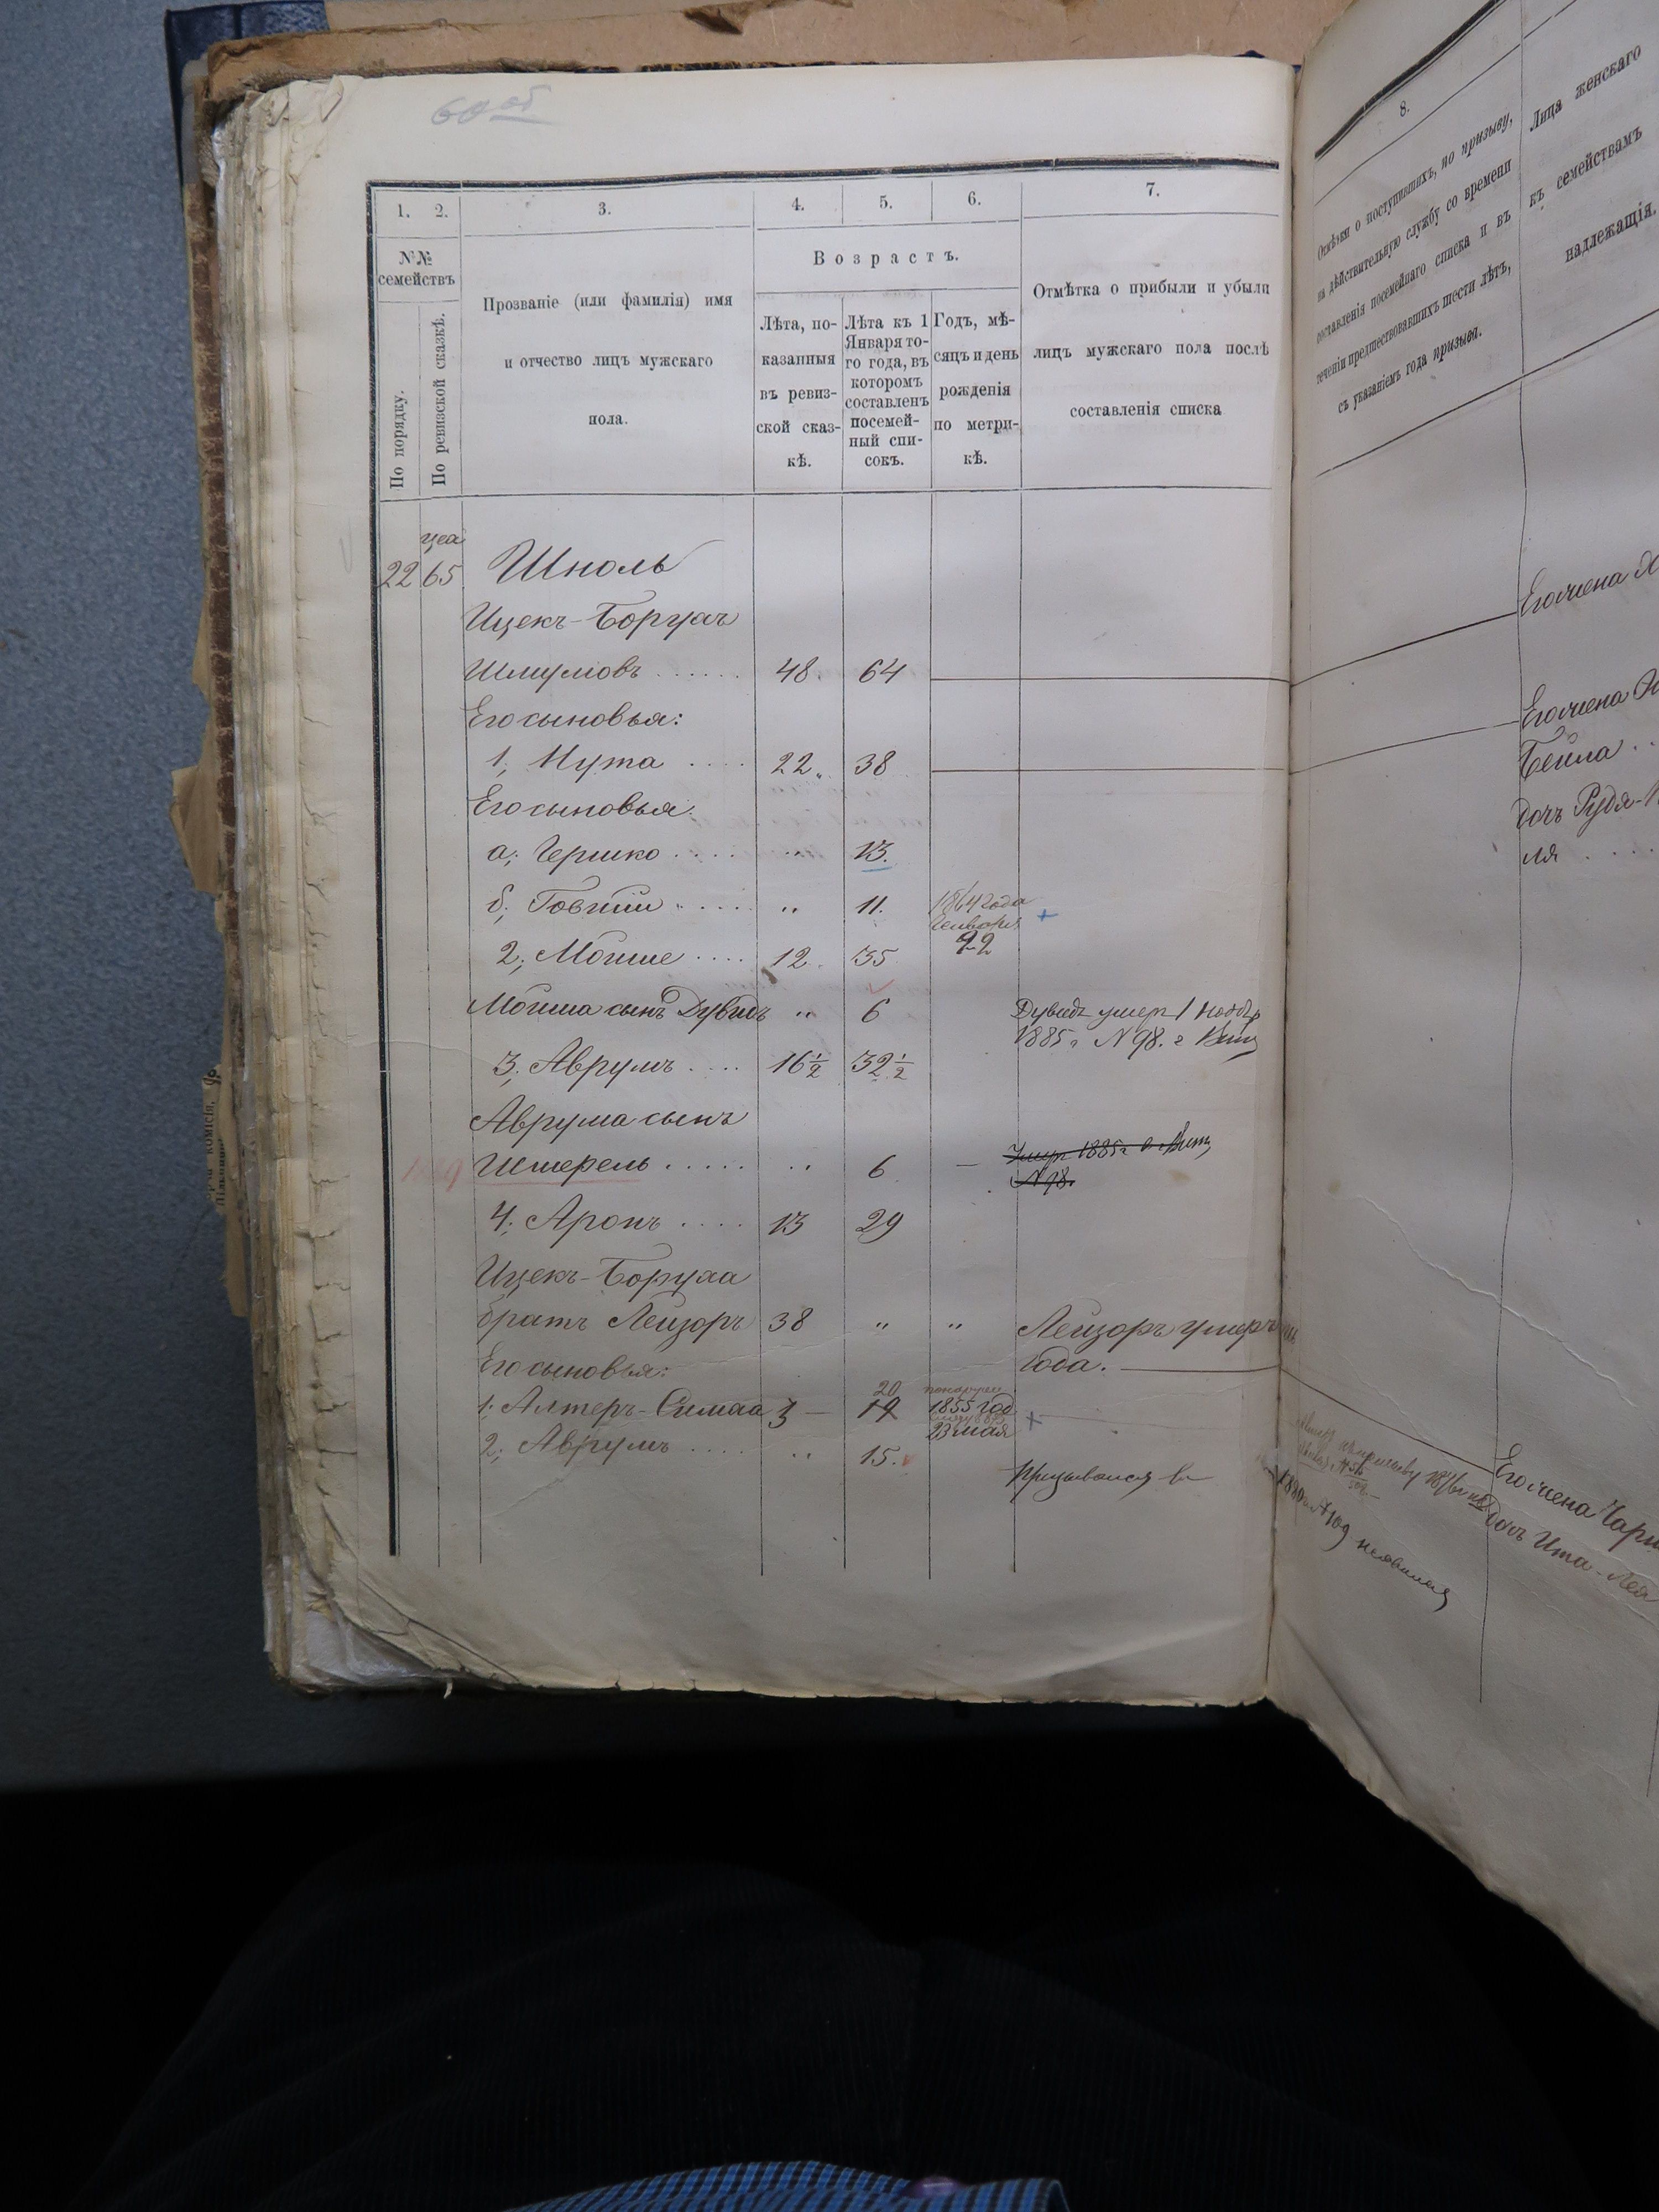 60 об
1. 2. 3. 4. 5. 6. 7.
№№ семействъ
По порядку.
По ревизской сказкѣ.
Прозваніе (или фамилія) имя
и отчество лицъ мужскаго
пола.
Возрастъ.
Лѣта, по-
казанныя
въ ревиз-
ской сказ-
кѣ.
Лѣта къ 1
Января то-
го года, въ
которомъ
составленъ
посемей-
ный спи-
сокъ.
Годъ, мѣ-
сяцъ и день
рожденія
по метри-
кѣ.
Отмѣтка о прибыли и убыли
лицъ мужскаго пола послѣ
составленія списка
22 65 Шполь
Ицекъ-Борухъ
Шмулювъ 48. 64
Его сыновья:
1, Нута 22 38
Его сыновья:
а; Гершко " 13.
б; Говшій " 11. 1864 года
Генваря
22
2; Мойше 12 35
Мойша сынъ Дувидъ " 6 Дувидъ умеръ 1 ноябр
1885 г N 98.
3; Аврумъ 16½ 32½
Аврума сынъ
Шмерель " 6 — Умеръ 1885 г
N 98.
4; Аронъ 13 29
Ицекъ-Боруха
братъ Лейзоръ 38 " " Лейзоръ умеръ
года.
Его сыновья:
1; Алтеръ-Симха 3 — 19 20 1855 год
23 мая
2; Аврумъ " 15.
Призывался въ
1880 г №109 неявился
8.
Отмѣтки о поступившихъ, по призыву,
на дѣйствительную службу со времени
составленія посемейнаго списка и въ
теченіи предшествовавшихъ шести лѣтъ,
съ указаніемъ года призыва.
Лица женскаго
къ семействамъ
надлежащія.
Его жена
Его жена
Бейла
дочь Рудя-
ля
Его жена
Дочь Ита-Лея